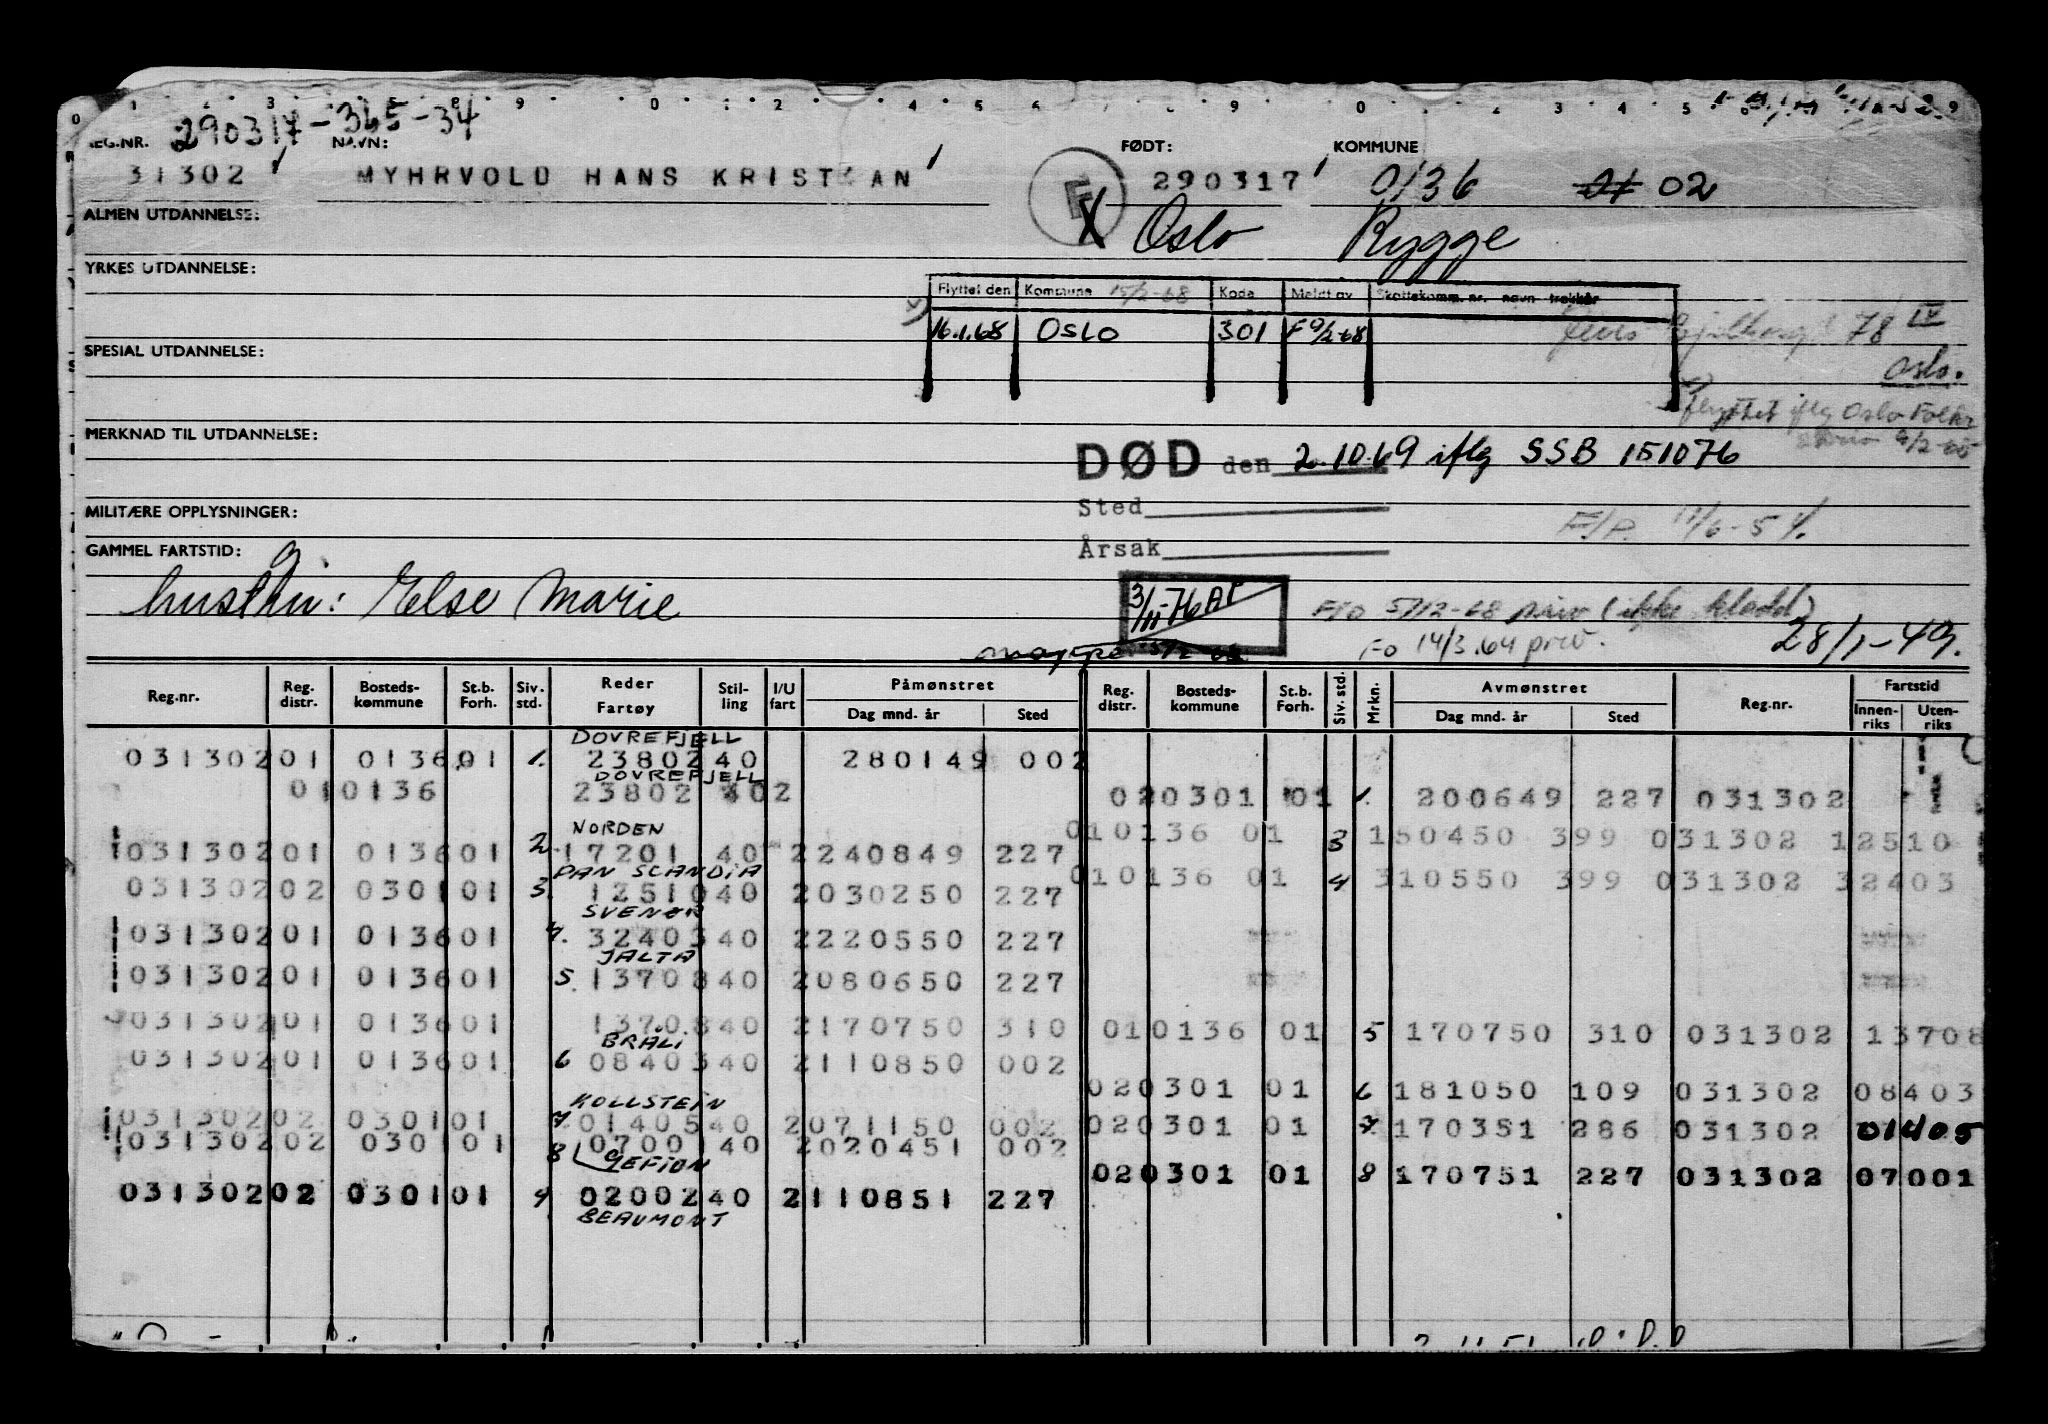 290317-365-34
REG.NR. NAVN: FØDT: KOMMUNE
31302 MYHRVOLD HANS KRISTIAN 290317 0136 02
F
X Oslo Rygge
ALMEN UTDANNELSE:
YRKES UTDANNELSE:
Flyttet den Kommune 15/2-68 Kode Meldt av Skattekomm. nr. navn trekkår
16.1.68 OSLO 301 F 9/2-68
78 IV
Oslo.
flyttet iflg Oslo Folkr
SPESIAL UTDANNELSE:
MERKNAD TIL UTDANNELSE:
DØD den 2.10.69 iflg SSB 151076
Sted
MILITÆRE OPPLYSNINGER:
Årsak
GAMMEL FARTSTID:
hustru: Else Marie
3/11-76 AP
FO 5/12-68 priv (ikke kladd)
FO 14/3.64 priv.
28/1-49.
Reg.nr. Reg. distr. Bosteds-kommune St.b. Forh. Siv. std. Reder Fartøy Stil-ling I/U fart Påmønstret Dag mnd. år Sted Reg. distr. Bosteds-kommune St.b. Forh. Siv. std. Mrkn. Avmønstret Dag mnd. år Sted Reg.nr. Fartstid Innen-riks Uten-riks
DOVREFJELL
031302 01 0136 01 1. 23802 40 280149 002
DOVREFJELL
01 0136 23802 402 02 0301 01 1. 200649 227 031302
NORDEN
01 0136 01 3 150450 399 031302 12510
031302 01 0136 01 2. 17201 40 2 240849 227
PAN SCANDIA
01 0136 01 4 310550 399 031302 32403
031302 02 0301 01 3. 12510 40 2 030250 227
SVENØR
031302 01 0136 01 4. 32403 40 2 220550 227
JALTA
031302 01 0136 01 5. 13708 40 2 080650 227
031302 01 0136 01 13708 40 2 170750 310 01 0136 01 5 170750 310 031302 13708
BRALI
031302 01 0136 01 6 08403 40 2 110850 002
02 0301 01 6 181050 109 031302 08403
KOLLSTEIN
031302 02 0301 01 7 01405 40 2 071150 002 02 0301 01 7 170351 286 031302 01405
031302 02 0301 01 8 07001 40 2 020451 002
GEFION
02 0301 01 8 170751 227 031302 07001
031302 02 0301 01 9 02002 40 2 110851 227
BEAUMONT